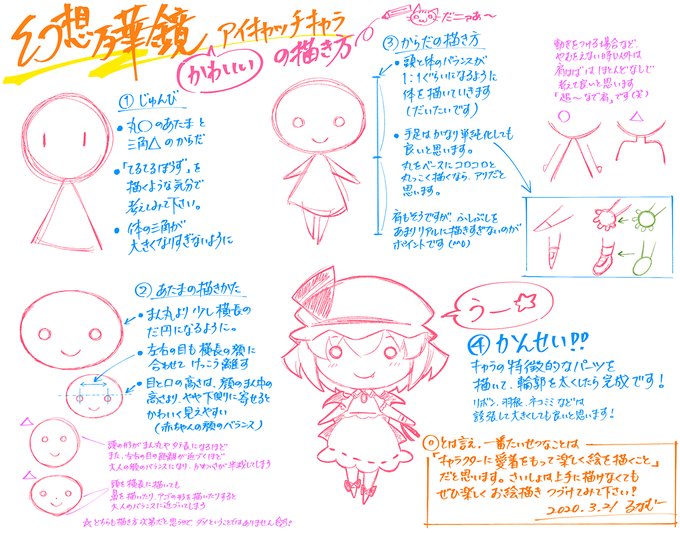 幻想万華鏡 アイキャッチキャラ
かわいい の描き方
だニャぁ〜
① じゅんび
• 丸○のあたまと
三角△のからだ
•「てるてるぼうず」を
描くような気分で
考えてみて下さい。
• 体の三角が
大きくなりすぎないように
② あたまの描きかた
• まん丸より少し横長の
だ円になるように。
• 左右の目も横長の顔に
合わせてけっこう離す
• 目と口の高さは、顔のまん中の
高さより、やや下側に寄せると
かわいく見えやすい
(赤ちゃんの顔のバランス)
△
頭の形がまん丸やタテ長になるほど
また、左右の目の距離が近づくほど
大人の顔のバランスになり、かわいさが半減してしまう
△
頭を横長に描いても
鼻を描いたり、アゴのある描いたりすると
大人のバランスに近づいてしまう
☆どちらも描き方次第だと思うので、ダメということではありません
③ からだの描き方
• 頭と体のバランスが
1:1ぐらいになるように
体を描いていきます
(だいたいです)
• 手足はかなり単純化しても
良いと思います。
丸をベースにコロコロと
丸っこく描くなら、アリだと
思います。
肩もそうですが、ふしぶしを
あまりリアルに描きすぎないのが
ポイントです
動きをつける場合など、
やむをえない時以外は
肩はばはほとんどなしで
考えて良いと思います
「超〜なで肩」です
○ △
うー☆
④ かんせい!!
キャラの特徴的なパーツを
描いて、輪郭を太くしたら完成です!
リボン、羽根、ネコミミなどは
誇張して大きくしても良いと思います!
◎とは言え、一番たいせつなことは
「キャラクターに愛着をもって楽しく絵を描くこと」
だと思います。さいしょは上手に描けなくても
ぜひ楽しくお絵描きつづけてみて下さい!
2020.3.21 るなむー